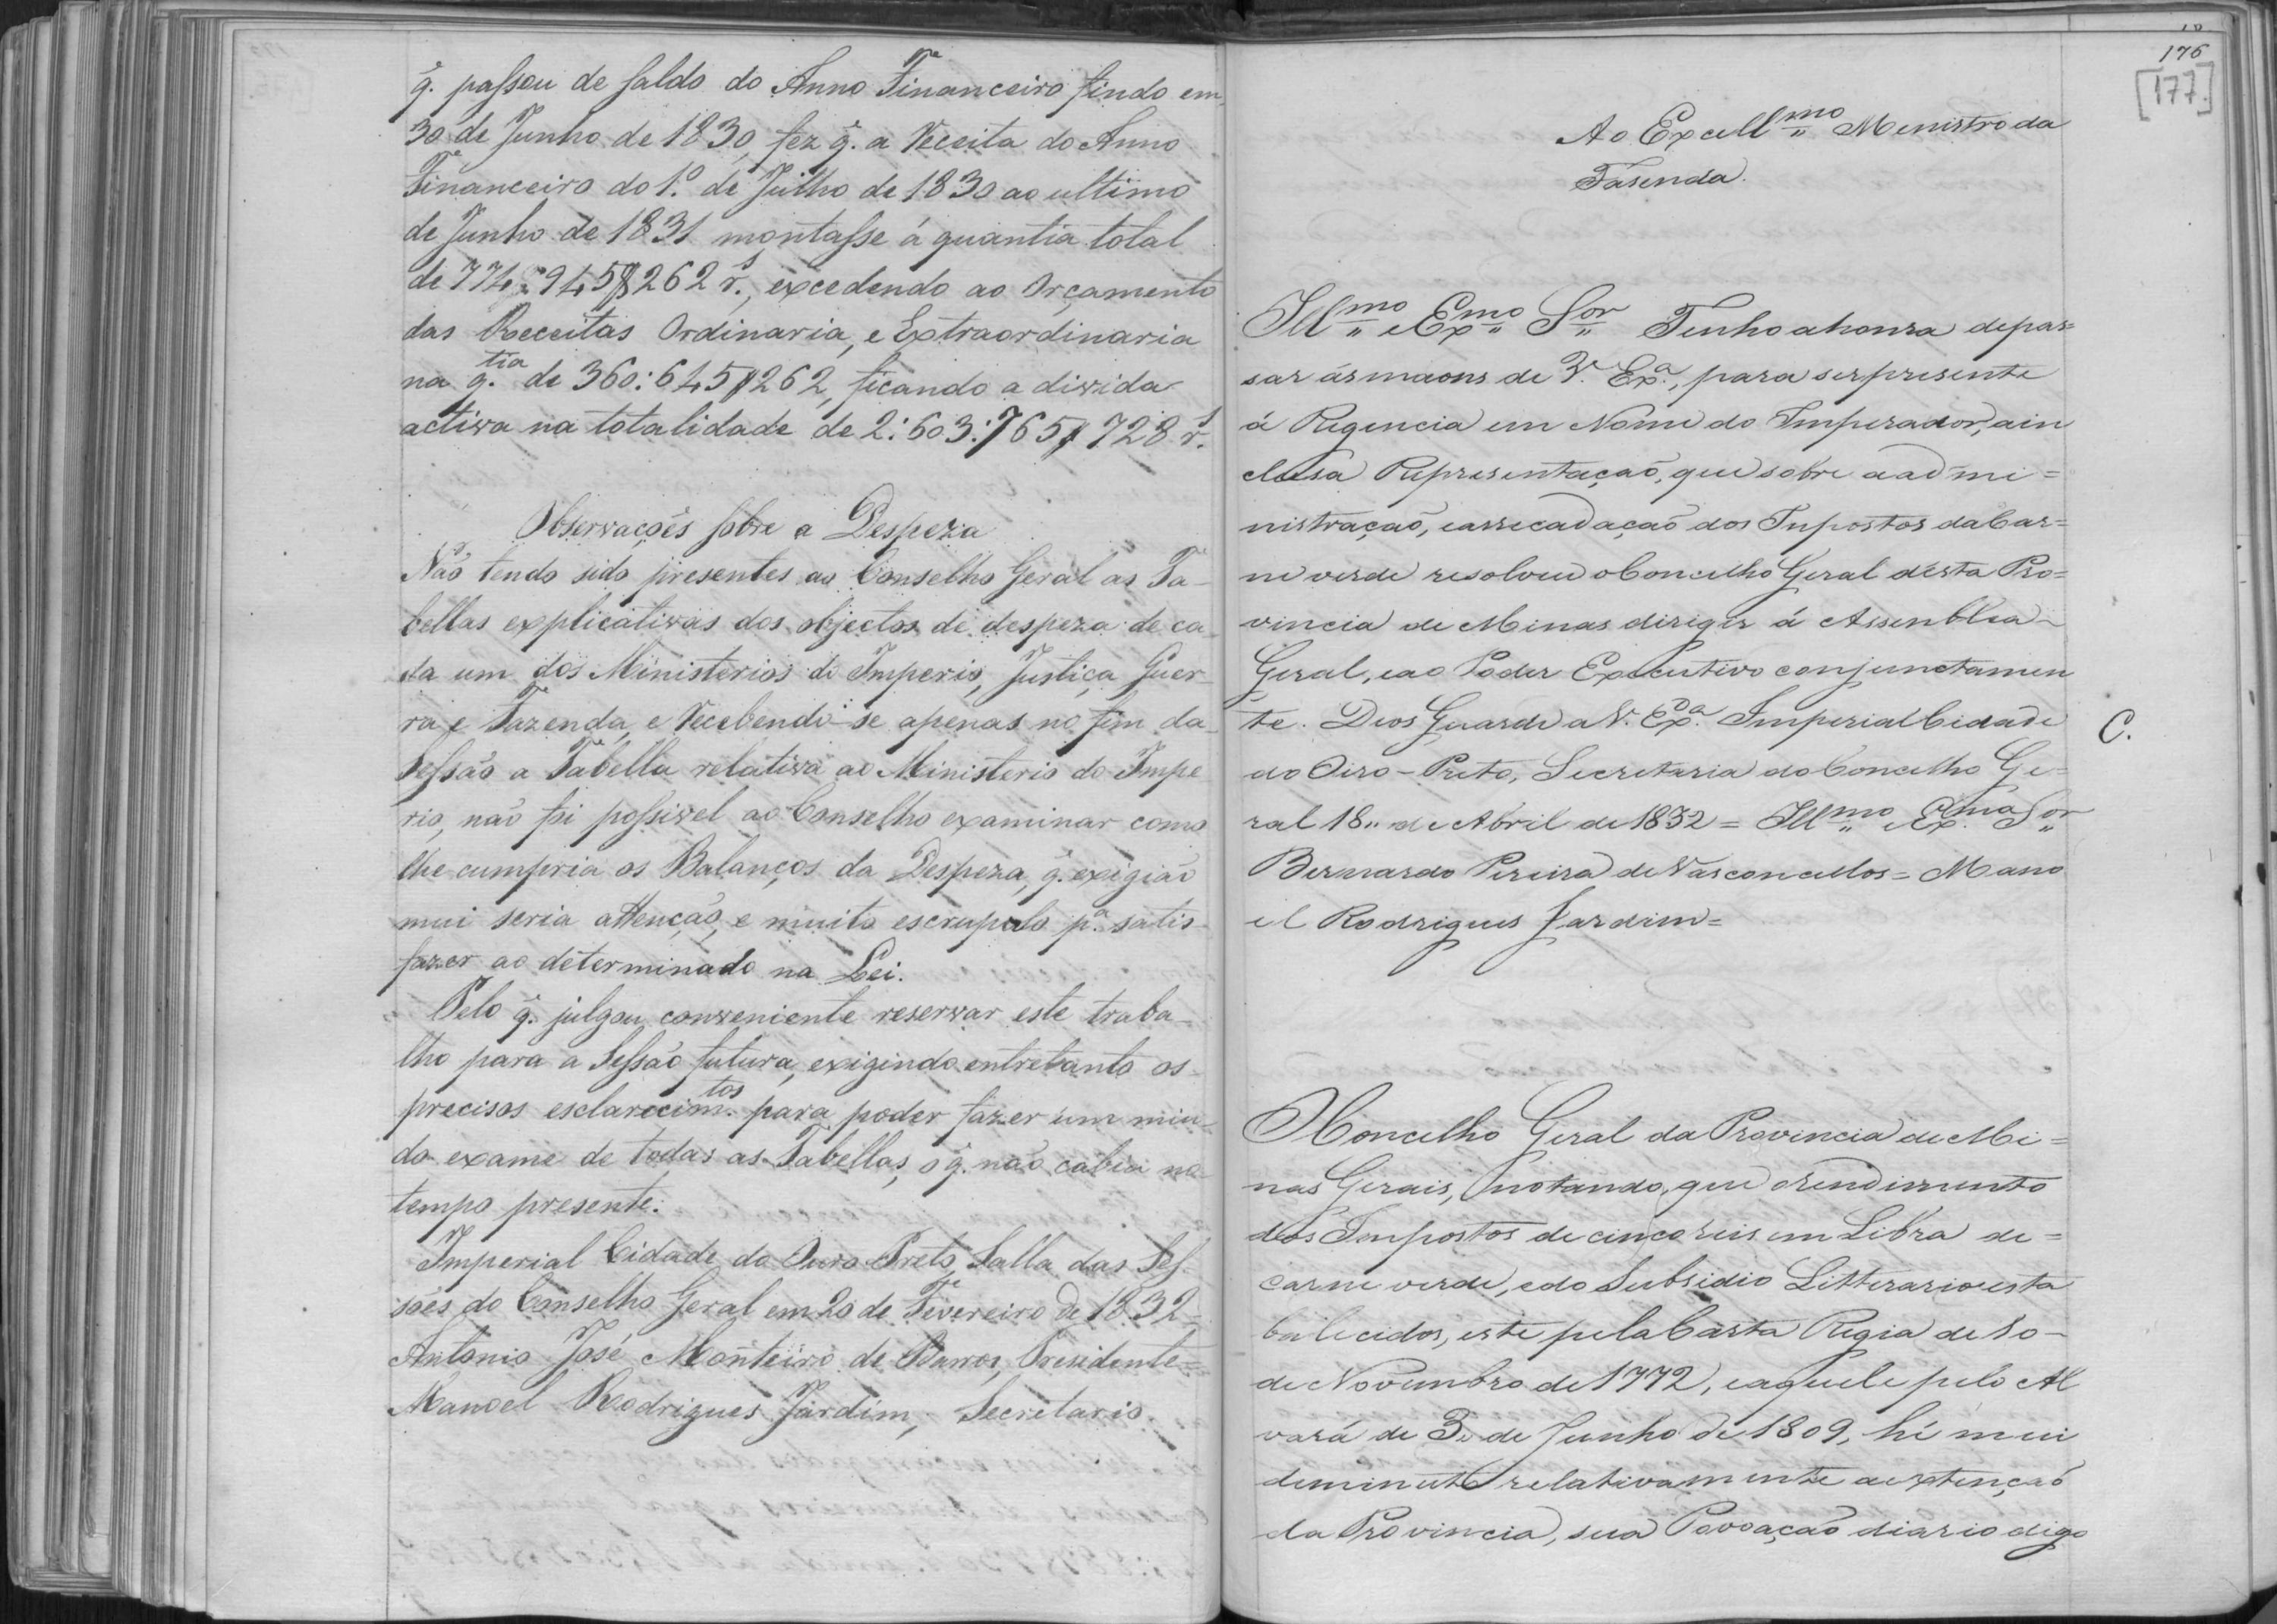 q̃. passou de saldo do Anno Financeiro findo em
30 de Junho de 1830, fez q̃. a Receita do Anno
Financeiro do 1.º de Julho de 1830 ao ultimo
de Junho de 1831 montasse á quantia total
de 774:945$262 r.s, excedendo ao Orçamento
das Receitas Ordinaria, e Extraordinaria
na q.tia de 360:645$262, ficando a divida
activa na totalidade de 2:603:765$728 r.s
Observações sobre a Despeza
Não tendo sido presentes ao Conselho Geral as Ta-
bellas explicativas dos objectos de despeza de ca-
da um dos Ministerios do Imperio, Justiça Guer-
ra e Fazenda, e Recebendo-se apenas no fim da
Sessão a Tabella relativa ao Ministerio do Impe-
rio, não foi possivel ao Conselho examinar como
lhe cumpria os Balanços da Despeza, q̃. exigião
mui seria attenção, e muito escrupulo p.ª satis-
fazer ao determinado na Lei.
Pelo q̃. julgou conveniente reservar este traba-
lho para a Sessão futura, exigindo entretanto os
precisos esclarecim.tos para poder fazer um miu-
do exame de todas as Tabellas, o q̃. não cabia no
tempo presente.
Imperial Cidade do Ouro Preto, Salla das Ses-
sões do Conselho Geral em 20 de Fevereiro de 1832
Antonio José Monteiro de Barros, Presidente=
Manoel Rodrigues Jardim, Secretario.
176
[177.]
Ao Excell.mo Menistro da
Fasenda.
Ill.mo e Ex.mo S.or Tenho a honra de pas=
sar ás maons de V. Ex.ª, para ser presente
á Regencia em Nome do Imperador, a in
clusa Representação, que sobre a admi=
nistração, e arrecadação dos Inpostos da Car=
ne verde resolveu o Concelho Geral désta Pro=
vincia de Minas dirigir á Assenblea-
Geral, e ao Poder Executivo conjunctamen
te. Deos Guarde a V. Ex.ª Imperial Cidade
C.
do Oiro-Preto, Secretaria do Concelho Ge=
ral 18 de Abril de 1832 = Ill.mo e Ex.mo S.or
Bernardo Pereira de Vasconcellos = Mano
el Rodrigues Jardim =
O Concelho Geral da Provincia de Mi=
nas Gerais, notando, que o rendimento
dos Impostos de cinco reis em Libra de=
carne verde, e do Subsidio Litterario esta
belecidos, este pela Carta Regia de 10-
de Novembro de 1772, e aquele pelo Al
vará de 3 de Junho de 1809, hé mui
deminuto relativamente a extenção
da Provincia, sua Povoação diario digo